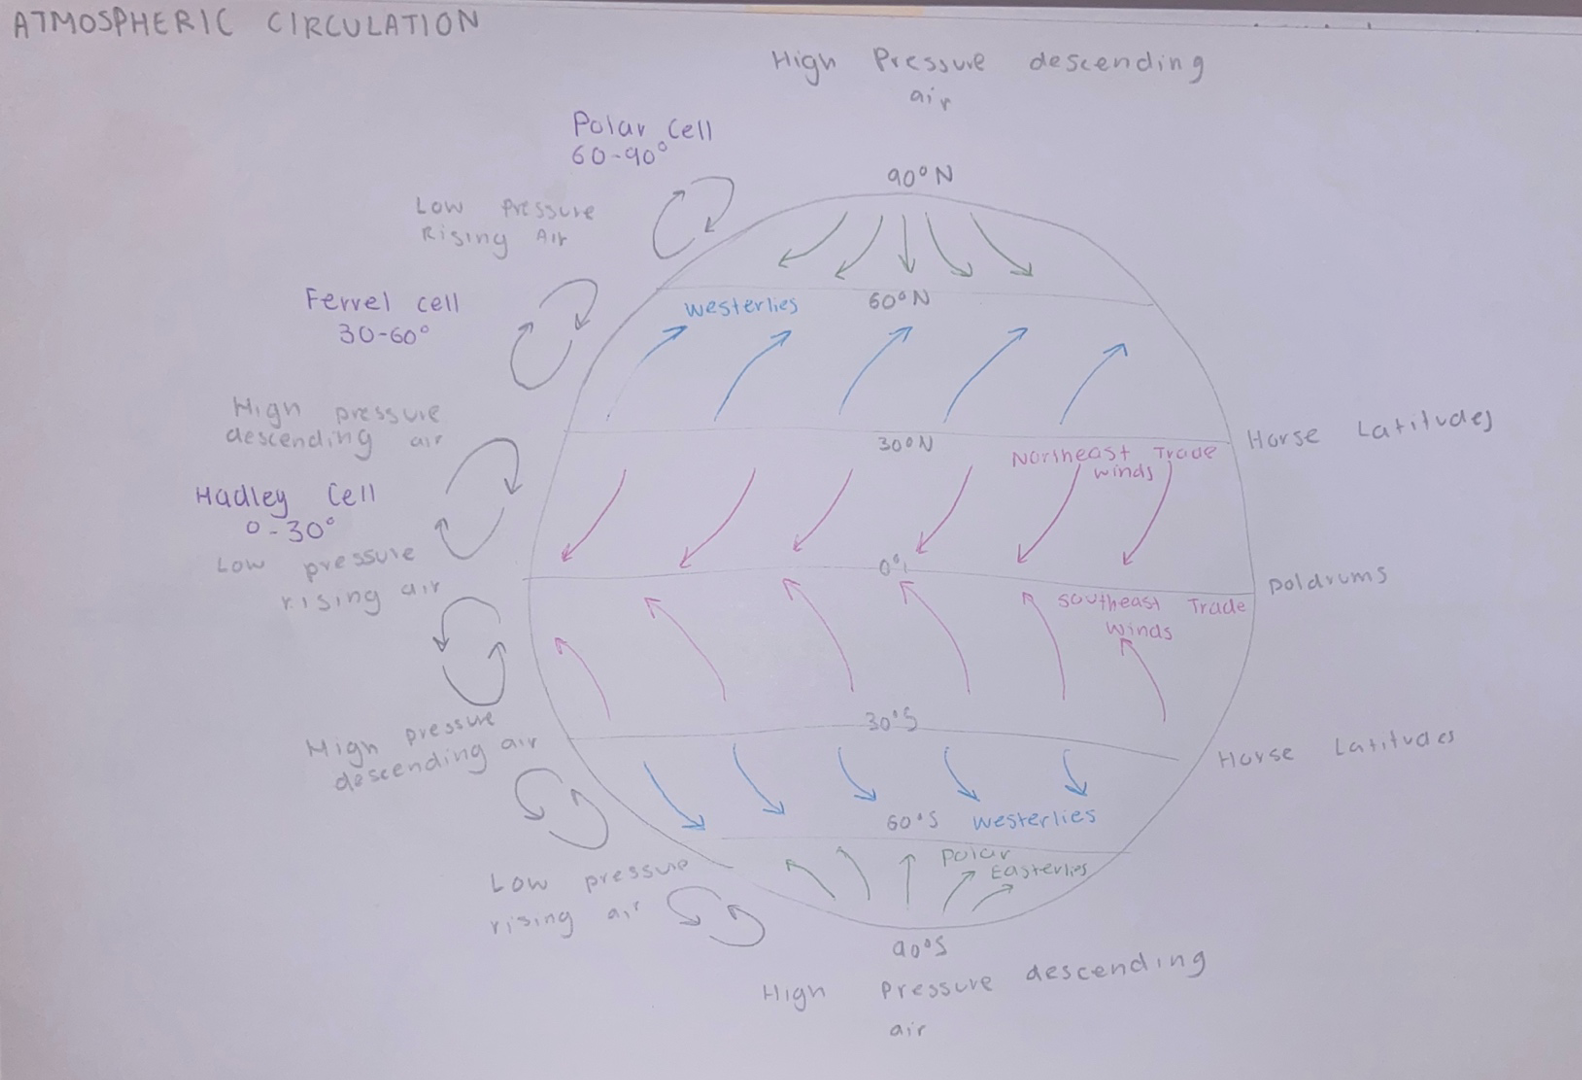 ATMOSPHERIC CIRCULATION
High Pressure descending
air
Polar Cell
60-90°
90°N
Low Pressure
Rising Air
Ferrel cell
30-60°
Westerlies
60°N
High pressure
descending air
Horse Latitudes
30°N
Northeast Trade
winds
Hadley Cell
0-30°
Low pressure
rising air
0°
Doldrums
Southeast Trade
Winds
30°S
High pressure
descending air
Horse Latitudes
60°S
Westerlies
Polar
Easterlies
Low pressure
rising air
90°S
High Pressure descending
air